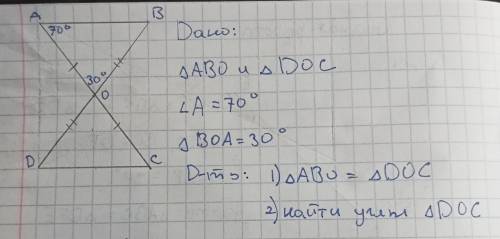 A
B
70°
30°
O
D
C
Дано:
△ABO и △DOC
∠A = 70°
△BOA = 30°
D-ть: 1) △ABO = △DOC
2) найти углы △DOC